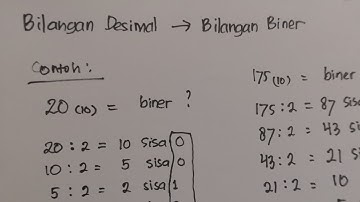 Bilangan Desimal → Bilangan Biner
Contoh :
20 (10) = biner ?
20 : 2 = 10 sisa 0
10 : 2 = 5 sisa 0
5 : 2 = 2 sisa 1
175 (10) = biner
175 : 2 = 87 sis
87 : 2 = 43 sis
43 : 2 = 21 si
21 : 2 = 10